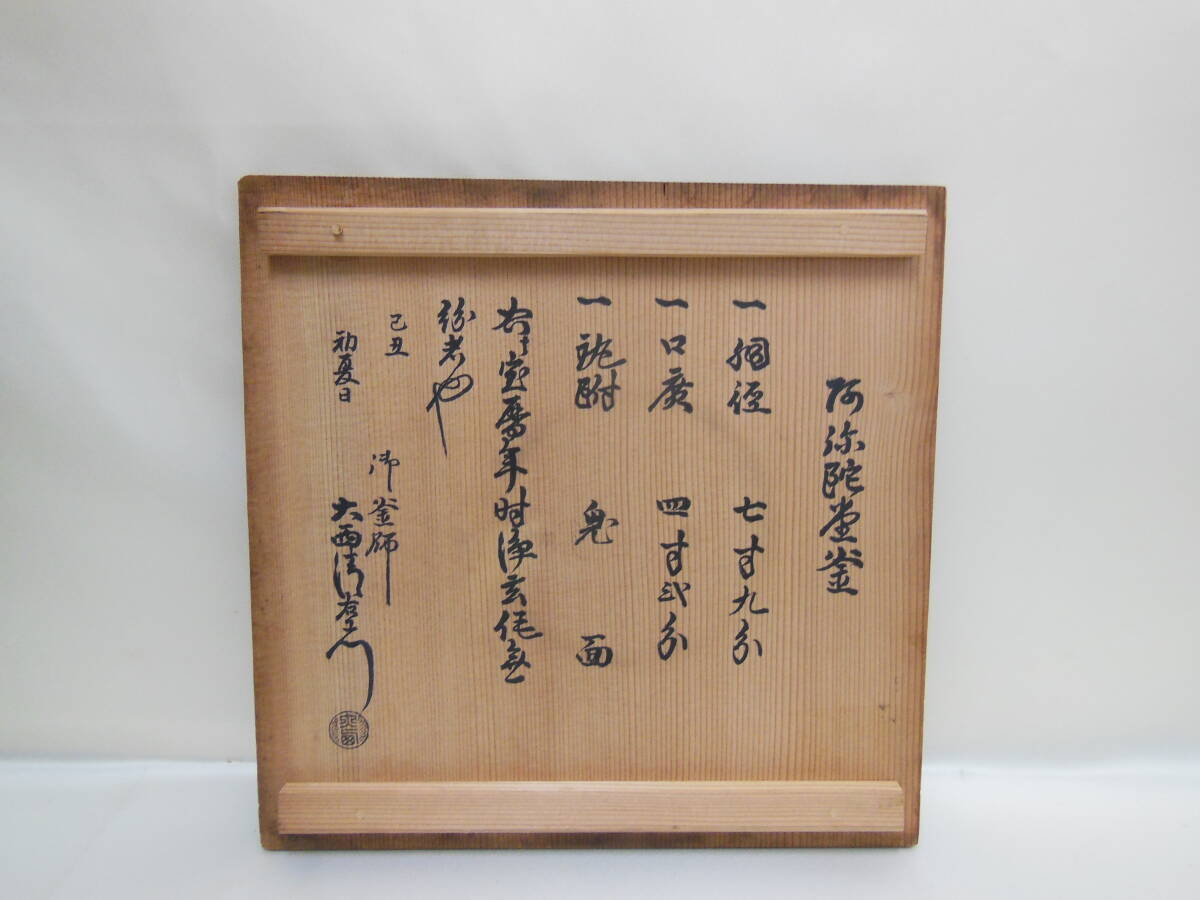 阿弥陀堂釜
一胴径 七寸九分
一口広 四寸弐分
一鐶附 鬼面
右宝暦年時浄玄作無
紛者也
己丑
初夏日
御釜師
大西清右衛門